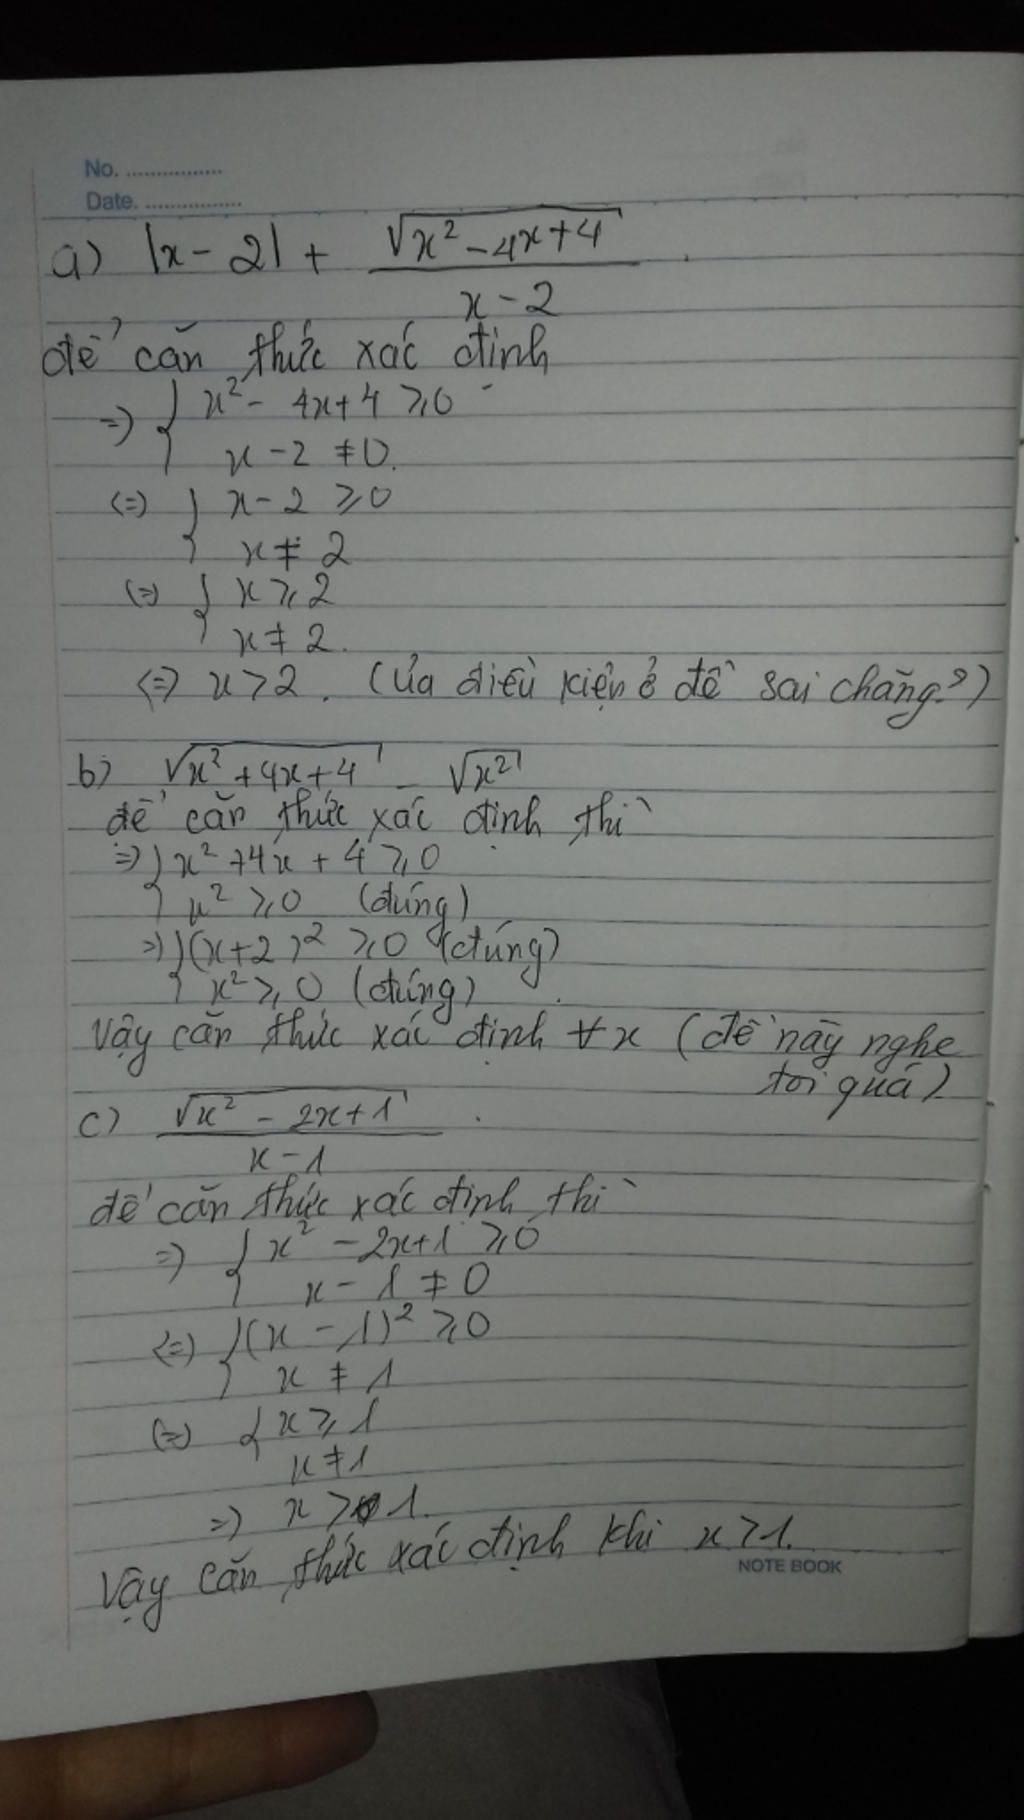 No. ................
Date. ................
a) |x - 2| + √(x² - 4x + 4) / (x - 2)
để căn thức xác định
=> { x² - 4x + 4 ≥ 0
x - 2 ≠ 0.
<=> { x - 2 ≥ 0
x ≠ 2
<=> { x ≥ 2
x ≠ 2.
<=> x > 2. (Ủa điều kiện ở đề sai chăng?)
b) √(x² + 4x + 4) - √(x²)
để căn thức xác định thì
=> { x² + 4x + 4 ≥ 0
x² ≥ 0 (đúng)
=> { (x+2)² ≥ 0 (đúng)
x² ≥ 0 (đúng)
Vậy căn thức xác định ∀x (đề này nghe
tới quá)
c) √(x² - 2x + 1) / (x - 1)
để căn thức xác định thì
=> { x² - 2x + 1 ≥ 0
x - 1 ≠ 0
<=> { (x - 1)² ≥ 0
x ≠ 1
<=> { x ≥ 1
x ≠ 1
=> x > 1.
Vậy căn thức xác định khi x > 1.
NOTE BOOK